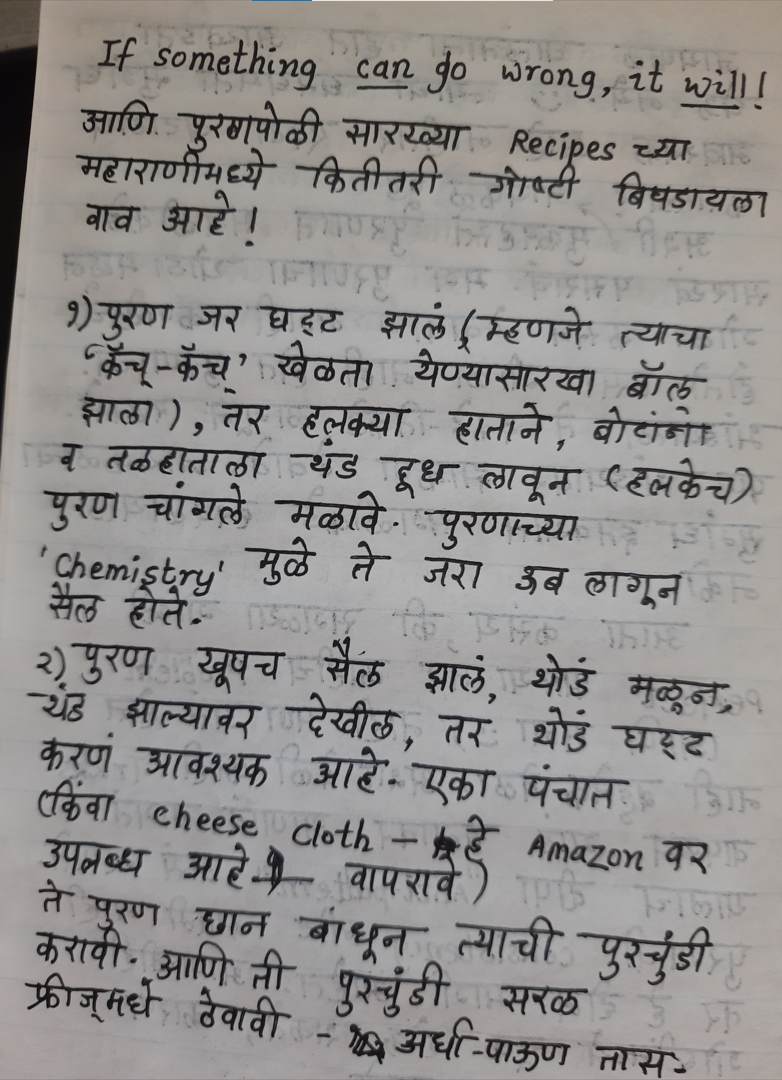 If something can go wrong, it will!
आणि पुरणपोळी सारख्या Recipes च्या
महाराणीमध्ये कितीतरी गोष्टी बिघडायला
वाव आहे!
१) पुरण जर घट्ट झालं (म्हणजे त्याचा
'कॅच्-कॅच्' खेळता येण्यासारखा बॉल
झाला), तर हलक्या हाताने, बोटांना
व तळहाताला थंड दूध लावून (हलकेच)
पुरण चांगले मळावे. पुरणाच्या
'Chemistry' मुळे ते जरा ऊब लागून
सैल होते.
२) पुरण खूपच सैल झालं, थोडं मळून,
थंड झाल्यावर देखील, तर थोडं घट्ट
करणं आवश्यक आहे. एका पंचात
(किंवा cheese cloth - हे Amazon वर
उपलब्ध आहे - वापरावे)
ते पुरण छान बांधून त्याची पुरचुंडी
करावी. आणि ती पुरचुंडी सरळ
फ्रीज्मधे ठेवावी - अर्धा-पाऊण तास.